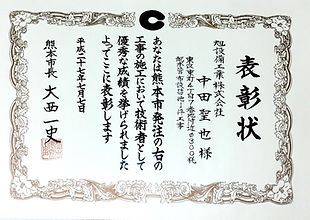 表彰状
旭設備工業株式会社
中田聖也様
東区東町4丁目7番地付近φ300粍
配水管布設替他1件工事
あなたは熊本市発注の右の
工事の施工において技術者として
優秀な成績を挙げられました
よってここに表彰します
平成二十七年七月七日
熊本市長 大西一史